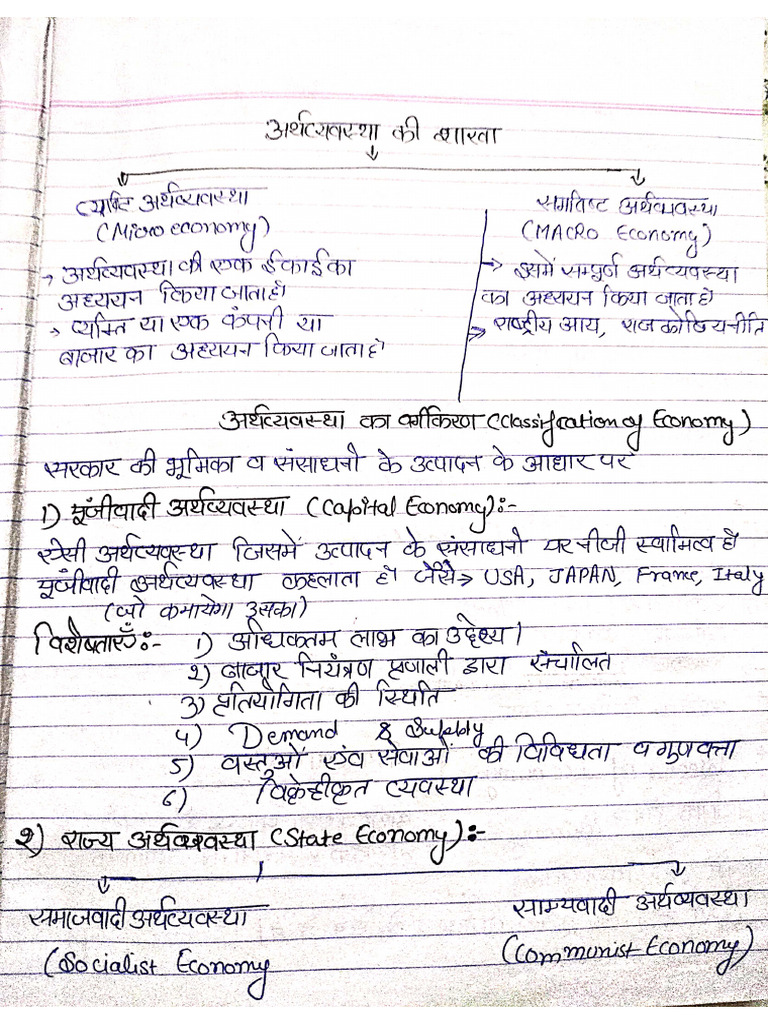 अर्थव्यवस्था की शाखा
व्यष्टि अर्थव्यवस्था
(Micro economy)
→ अर्थव्यवस्था की एक ईकाई का
अध्ययन किया जाता है
→ व्यक्ति या एक कंपनी या
बाजार का अध्ययन किया जाता है
समष्टि अर्थव्यवस्था
(MACRO Economy)
→ इसमें सम्पूर्ण अर्थव्यवस्था
का अध्ययन किया जाता है
→ राष्ट्रीय आय, राजकोषियनीति
अर्थव्यवस्था का वर्गीकरण (Classification of Economy)
सरकार की भूमिका व संसाधनो के उत्पादन के आधार पर
1) पूंजीवादी अर्थव्यवस्था (Capital Economy):-
ऐसी अर्थव्यवस्था जिसमें उत्पादन के संसाधनो पर नीजी स्वामित्व है
पूंजीवादी अर्थव्यवस्था कहलाता है जैसे→ USA, JAPAN, Frame, Italy
(जो कमायेगा उसका)
विशेषताएँ:- 1) अधिकतम लाभ का उद्देश्य।
2) बाजार नियंत्रण प्रणाली द्वारा संचालित
3) प्रतियोगिता की स्थिति
4) Demand & Supply
5) वस्तुओं एंव सेवाओं की विविधता व गुणवत्ता
6) विकेन्द्रीकृत व्यवस्था
2) राज्य अर्थव्यवस्था (State Economy):-
समाजवादी अर्थव्यवस्था
(Socialist Economy
साम्यवादी अर्थव्यवस्था
(Communist Economy)